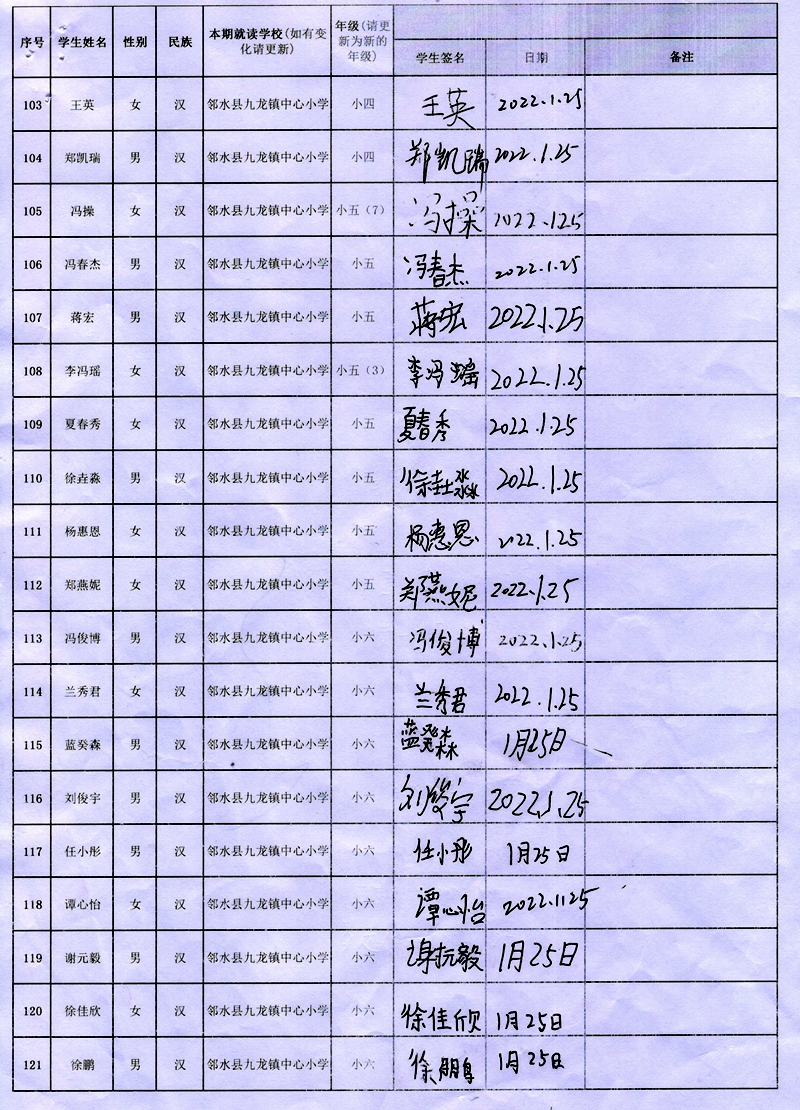 序号 学生姓名 性别 民族 本期就读学校(如有变化请更新) 年级(请更新为新的年级) 学生签名 日期 备注
103 王英 女 汉 邻水县九龙镇中心小学 小四 王英 2022.1.25
104 郑凯瑞 男 汉 邻水县九龙镇中心小学 小四 郑凯瑞 2022.1.25
105 冯操 女 汉 邻水县九龙镇中心小学 小五（7） 冯操 2022.1.25
106 冯春杰 男 汉 邻水县九龙镇中心小学 小五 冯春杰 2022.1.25
107 蒋宏 男 汉 邻水县九龙镇中心小学 小五 蒋宏 2022.1.25
108 李冯瑶 女 汉 邻水县九龙镇中心小学 小五（3） 李冯瑶 2022.1.25
109 夏春秀 女 汉 邻水县九龙镇中心小学 小五 夏春秀 2022.1.25
110 徐垚淼 男 汉 邻水县九龙镇中心小学 小五 徐垚淼 2022.1.25
111 杨惠恩 女 汉 邻水县九龙镇中心小学 小五 杨惠恩 2022.1.25
112 郑燕妮 女 汉 邻水县九龙镇中心小学 小五 郑燕妮 2022.1.25
113 冯俊博 男 汉 邻水县九龙镇中心小学 小六 冯俊博 2022.1.25
114 兰秀君 女 汉 邻水县九龙镇中心小学 小六 兰秀君 2022.1.25
115 蓝癸森 男 汉 邻水县九龙镇中心小学 小六 蓝癸森 1月25日
116 刘俊宇 男 汉 邻水县九龙镇中心小学 小六 刘俊宇 2022.1.25
117 任小彤 男 汉 邻水县九龙镇中心小学 小六 任小彤 1月25日
118 谭心怡 女 汉 邻水县九龙镇中心小学 小六 谭心怡 2022.1.25
119 谢元毅 男 汉 邻水县九龙镇中心小学 小六 谢元毅 1月25日
120 徐佳欣 女 汉 邻水县九龙镇中心小学 小六 徐佳欣 1月25日
121 徐鹏 男 汉 邻水县九龙镇中心小学 小六 徐鹏 1月25日